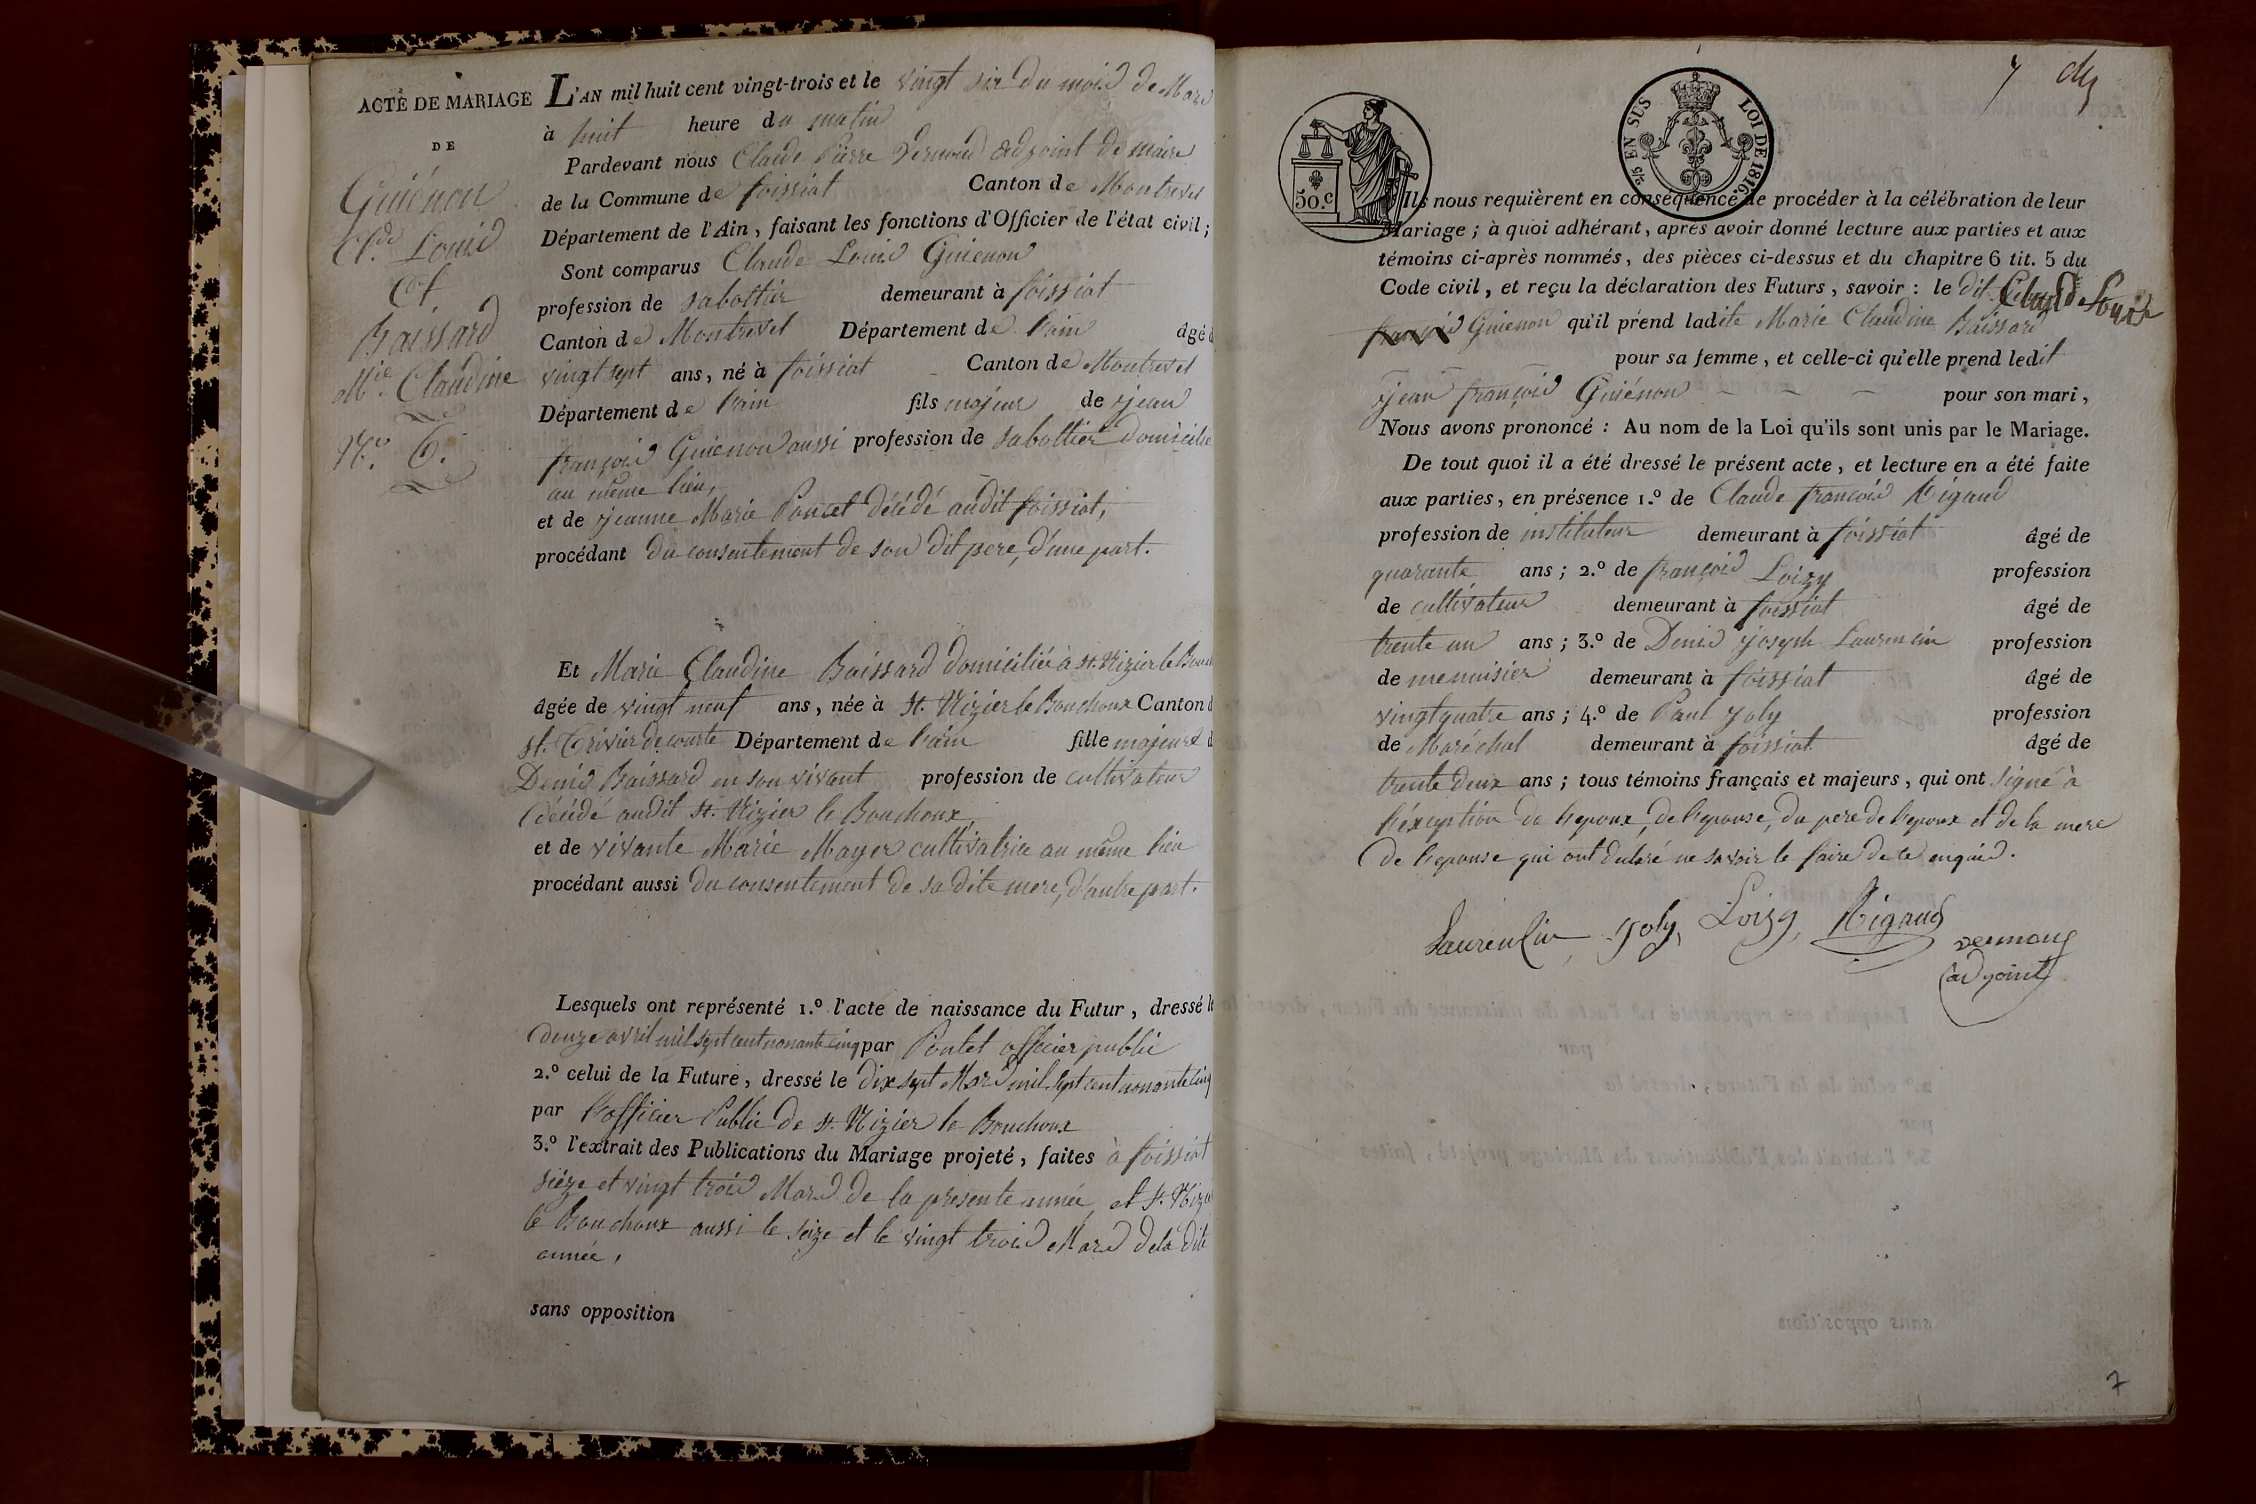 ACTE DE MARIAGE
DE
Guiénon
Cl.de Louis
Et
Baissard
M.ie Claudine
N.o 6.
L'AN mil huit cent vingt-trois et le vingt six du mois de Mars
à huit heure du matin
Pardevant nous Claude Pierre Vernoud adjoint de maire
de la Commune de foissiat Canton de Montrevel
Département de l'Ain, faisant les fonctions d'Officier de l'état civil;
Sont comparus Claude Louis Guienon
profession de sabottier demeurant à foissiat
Canton de Montrevel Département de l'ain âgé d
vingt sept ans, né à foissiat Canton de Montrevel
Département de l'ain fils majeur de jean
françois Guienon aussi profession de sabottier domicilié
au même lieu,
et de jeanne Marie Poncet décédé audit foissiat,
procédant du consentement de son dit pere, d'une part.
Et Marie Claudine Baissard domiciliée à st. Nizier le Bouch
âgée de vingt neuf ans, née à st. Nizier le Bouchoux Canton d
st. Trivier de courte Département de l'ain fille majeure d
Denis Baissard en son vivant profession de cultivateur
décédé audit st. Nizier le Bouchoux,
et de vivante Marie Mayer cultivatrice au même lieu
procédant aussi du consentement de sa dite mere, d'autre part.
Lesquels ont représenté 1.º l'acte de naissance du Futur, dressé le
douze avril mil sept cent nonante cinq par Pontet officier public
2.º celui de la Future, dressé le dix sept Mars mil sept cent nonante cinq
par l'officier Public de st. Nizier le Bouchoux
3.º l'extrait des Publications du Mariage projeté, faites à foissiat
sièze et vingt trois Mars de la presente année, et st. Nizie
le Bouchoux aussi le seize et le vingt trois Mars de la dite
année,
sans opposition
7
50.c
5/10 EN SUS LOI DE 1816.
Ils nous requièrent en conséquence de procéder à la célébration de leur
Mariage; à quoi adhérant, après avoir donné lecture aux parties et aux
témoins ci-après nommés, des pièces ci-dessus et du chapitre 6 tit. 5 du
Code civil, et reçu la déclaration des Futurs, savoir: le dit Claude Louis
françois Guienon qu'il prend ladite Marie Claudine Baissard
pour sa femme, et celle-ci qu'elle prend ledit
jean françois Guiénon pour son mari,
Nous avons prononcé: Au nom de la Loi qu'ils sont unis par le Mariage.
De tout quoi il a été dressé le présent acte, et lecture en a été faite
aux parties, en présence 1.º de Claude françois Rigaud
profession de instituteur demeurant à foissiat âgé de
quarante ans; 2.º de françois Loizy profession
de cultivateur demeurant à foissiat âgé de
trente un ans; 3.º de Denis joseph Laurencin profession
de menuisier demeurant à foissiat âgé de
vingt quatre ans; 4.º de Paul joly profession
de Maréchal demeurant à foissiat âgé de
trente deux ans; tous témoins français et majeurs, qui ont signé à
l'éxception de l'epoux, de l'epouse, du pere de l'epoux et de la mere
de l'epouse qui ont déclaré ne savoir le faire de ce enquis.
Laurencin, joly, Loizy, Rigaud
vernoud
adjoint
7